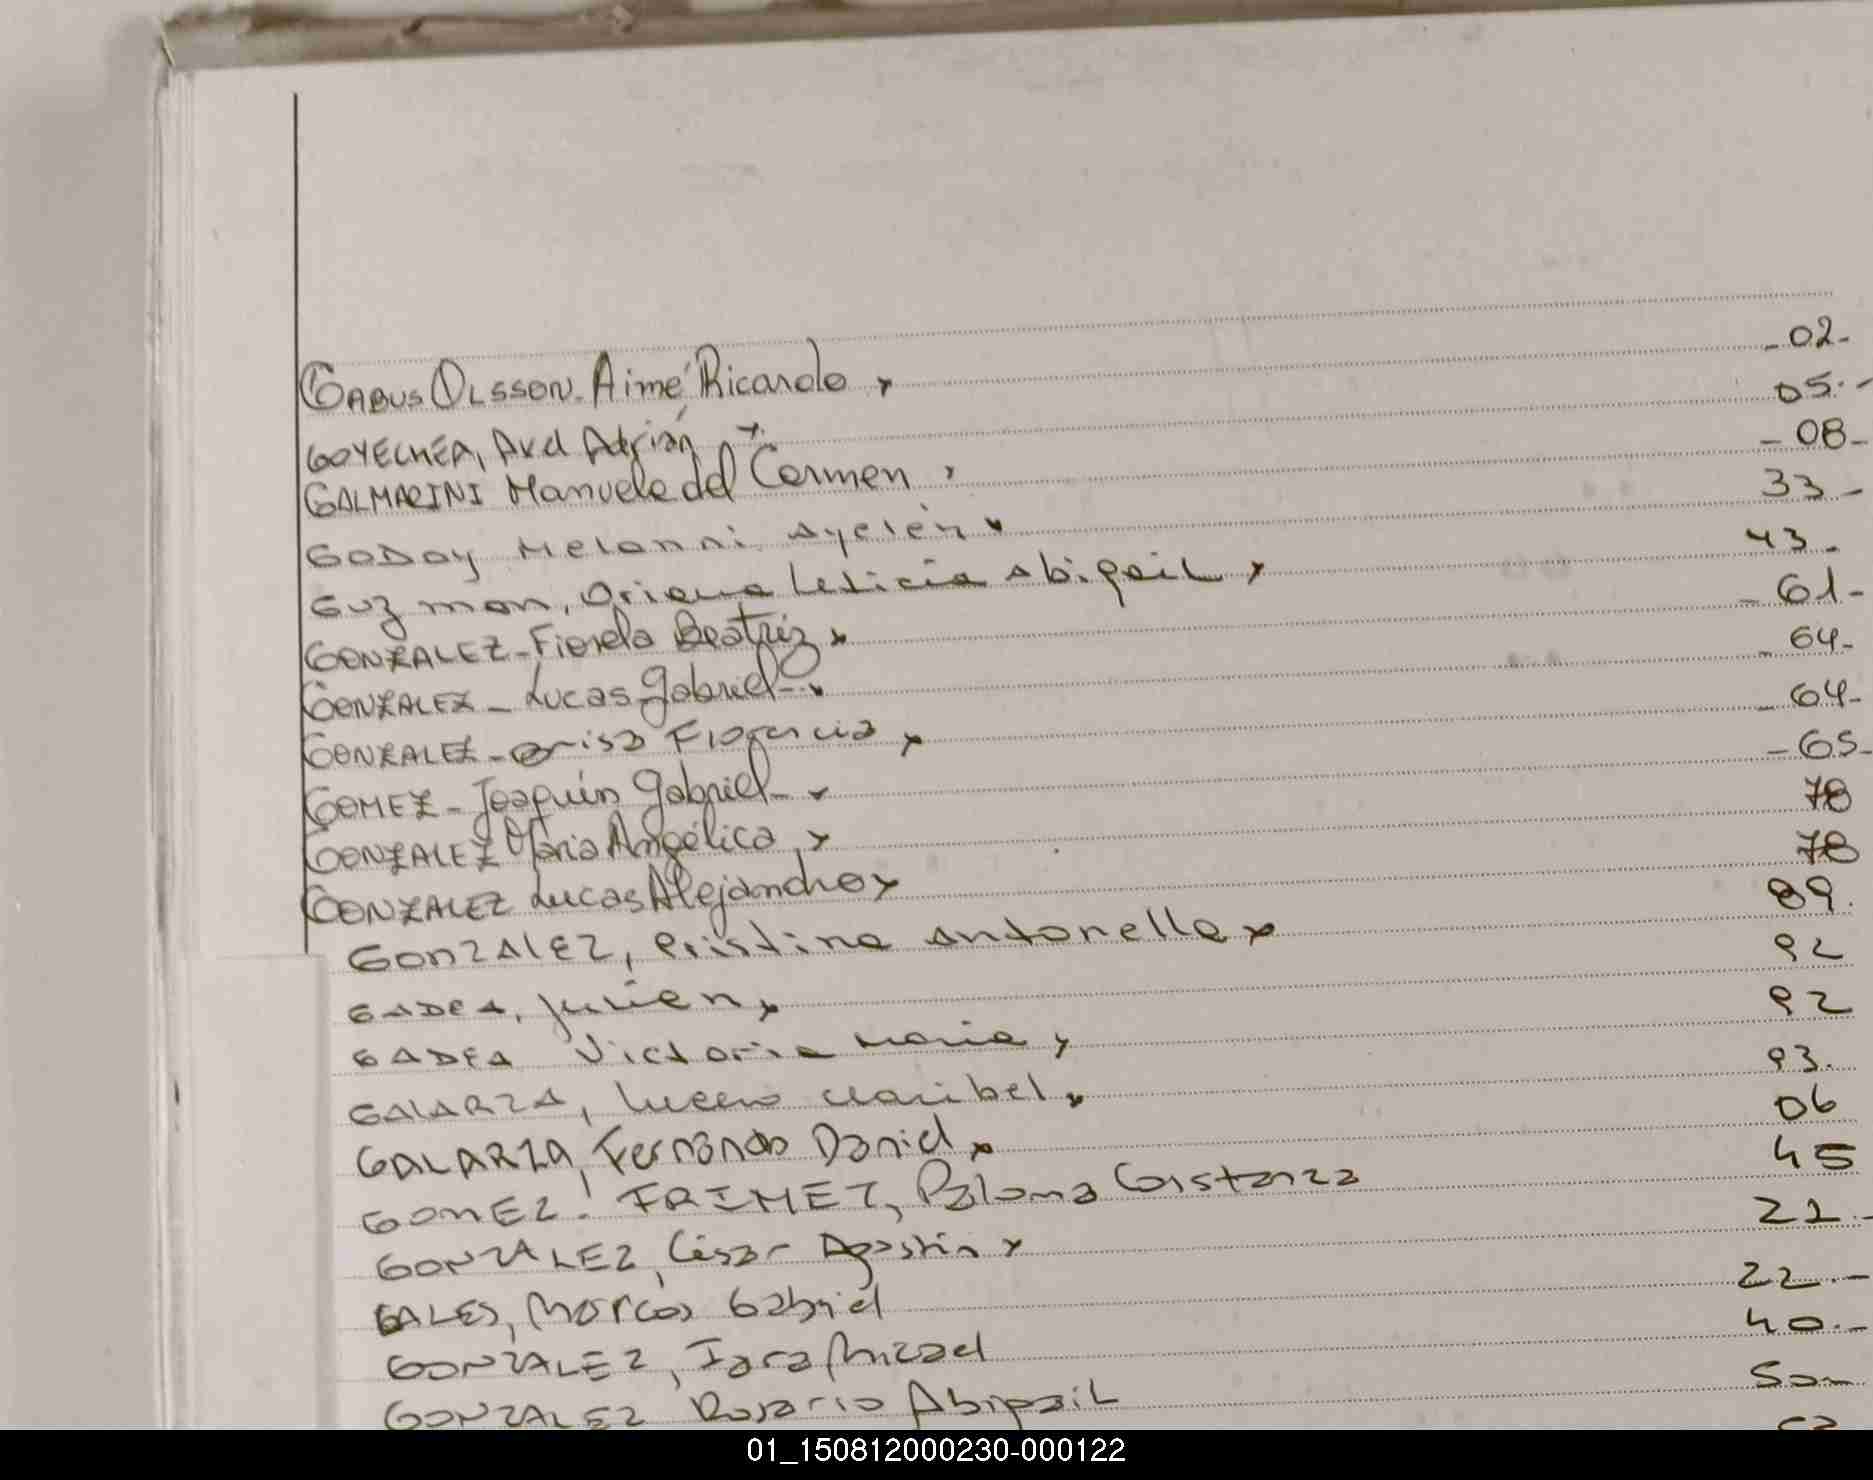 GABUS OLSSON. Aimé Ricardo - 02 -
GOYECHEA, Axel Adrián 05. -
GALMARINI Manuela del Carmen - 08 -
GODOY Melanni Ayelén 33 -
Guzman, Oriana Leticia Abigail 43 -
GONZALEZ - Fiorela Beatriz - 61 -
GONZALEZ - Lucas Gabriel - - 64 -
GONZALEZ - Brisa Florencia - 64 -
GOMEZ - Joaquín Gabriel - - 65 -
GONZALEZ María Angélica 78
GONZALEZ Lucas Alejandro 78
GONZALEZ, Cristina Antonella 89.
GADEA, Julien 92
GADEA Victoria Maria 92
GALARZA, Lucero Maribel 93.
GALARZA, Fernando Daniel 06
GOMEZ FRIMET, Paloma Constanza 45
GONZALEZ, César Agostin 21. -
GALES, Marcos Gabriel 22. -
GONZALEZ, Iara Micael 40. -
GONZALEZ Rosario Abigail 50 -
01_150812000230-000122